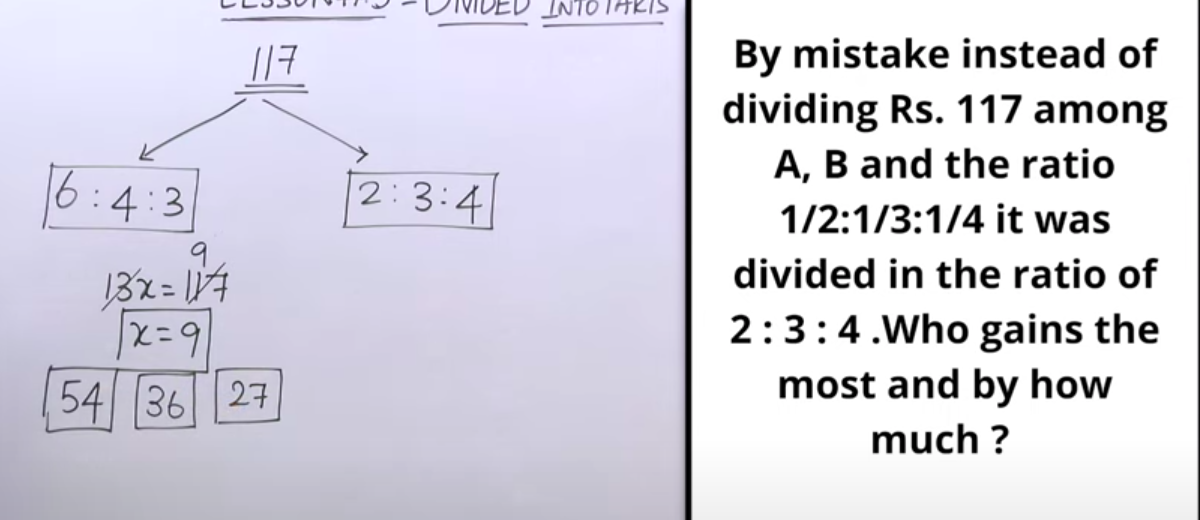 DIVIDED INTO PARTS
117
6 : 4 : 3
2 : 3 : 4
9
13x = 117
x = 9
54 36 27
By mistake instead of
dividing Rs. 117 among
A, B and the ratio
1/2:1/3:1/4 it was
divided in the ratio of
2 : 3 : 4 .Who gains the
most and by how
much ?